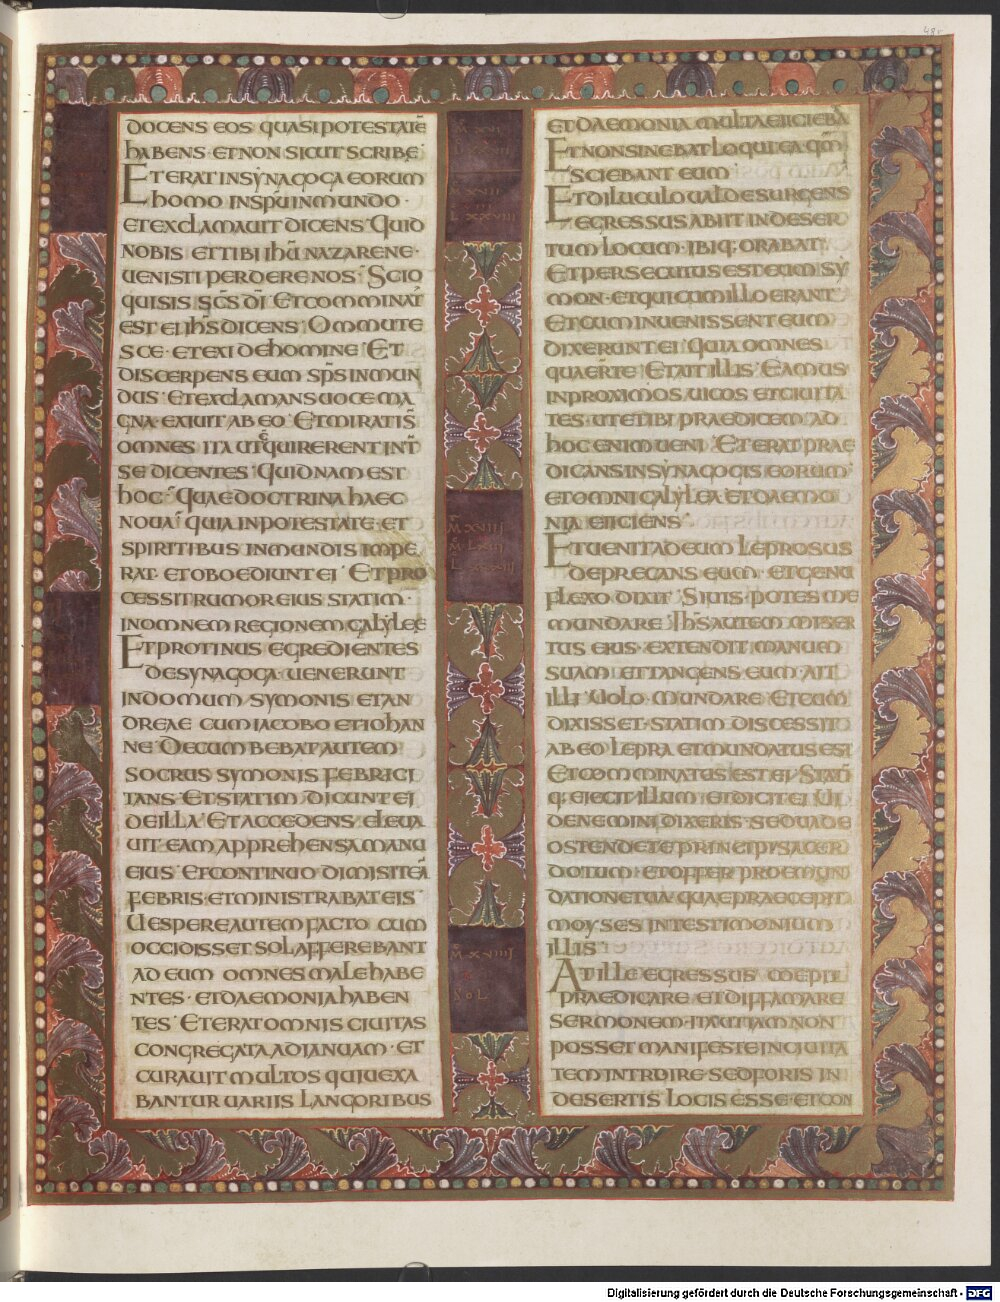 48r
DOCENS EOS· QUASI POTESTATĒ
HABENS· ET NON SICUT SCRIBE·
ET ERAT IN SYNAGOGA EORUM
HOMO IN SPŪ INMUNDO·
ET EXCLAMAUIT DICENS· QUID
NOBIS ET TIBI IHŪ NAZARENE·
UENISTI PERDERE NOS· SCIO
QUI SIS SCS DĪ· ET COMMINAT
EST EI IHS DICENS· OMMUTE
SCE· ET EXI DE HOMINE· ET
DISCERPENS EUM SPS INMUN
DUS· ET EXCLAMANS UOCE MA
GNA· EXIUIT AB EO· ET MIRATI S̄
OMNES ITA UT CQUIRERENT INT̄
SE DICENTES· QUID NAM EST
HOC· QUAE DOCTRINA HAEC
NOUA· QUIA IN POTESTATE· ET
SPIRITIBUS INMUNDIS IMPE
RAT· ET OBOEDIUNT EI· ET PRO
CESSIT RUMOR EIUS STATIM·
IN OMNEM REGIONEM GALYLEE
ET PROTINUS EGREDIENTES
DE SYNAGOGA· UENERUNT
IN DOMUM· SYMONIS ET AN
DREAE CUM IACOBO ET IOHAN
NE· DECUMBEBAT AUTEM
SOCRUS SYMONIS FEBRICI
TANS· ET STATIM DICUNT EI
DE ILLA· ET ACCEDENS· ELEUA
UIT· EAM APPREHENSA MANU
EIUS· ET CONTINUO· DIMISIT EĀ
FEBRIS· ET MINISTRABAT EIS·
UESPERE AUTEM FACTO· CUM
OCCIDISSET SOL AFFEREBANT
AD EUM OMNES MALE HABE
NTES· ET DAEMONIA HABEN
TES· ET ERAT OMNIS CIUITAS
CONGREGATA AD IANUAM· ET
CURAUIT MULTOS QUI UEXA
BANTUR UARIIS LANGORIBUS
M̄ XVIII
L XXVIII
M̄ XVIIII
M̄ LXIII
L XXXIII
M̄ XVIIII
SOL
ET DAEMONIA MULTA EIICIEBĀ
ET NON SINEBAT LOQUI EA QM̄
SCIEBANT EUM
ET DILUCULO UALDE SURGENS
EGRESSUS ABIIT IN DESER
TUM LOCUM· IBIQ; ORABAT·
ET PERSECUTUS EST EUM SY
MON· ET QUI CUM ILLO ERANT
ET CUM INUENISSENT EUM
DIXERUNT EI· QUIA OMNES
QUAERT̄ TE· ET AIT ILLIS· EAMUS
IN PROXIMOS UICOS ET CIUITA
TES· UT ET IBI PRAEDICEM· AD
HOC ENIM UENI· ET ERAT PRAE
DICANS IN SYNAGOGIS EORUM·
ET OMNI GALYLEA· ET DAEMO
NIA EIICIENS·
ET UENIT AD EUM LEPROSUS
DEPRECANS EUM· ET GENU
FLEXO DIXIT· SI UIS· POTES ME
MUNDARE· IHS AUTEM MISER
TUS EIUS· EXTENDIT MANUM
SUAM ET TANGENS EUM· AIT
ILLI· UOLO· MUNDARE· ET CUM̄
DIXISSET· STATIM DISCESSIT
AB EO LEPRA ET MUNDATUS EST
ET COMMINATUS EST EI· STATĪ
Q; EIECIT ILLUM· ET DICIT EI· UI
DE NEMINI DIXERIS· SED UADE
OSTENDE TE PRINCIPI SACER
DOTUM· ET OFFER PRO EMUN
DATIONE TUA· QUAE PRAECEPIT
MOYSES IN TESTIMONIUM
ILLIS
AT ILLE EGRESSUS COEPIT
PRAEDICARE· ET DIFFAMARE
SERMONEM· ITA UT IAM NON
POSSET MANIFESTE IN CIUITA
TEM INTROIRE· SED FORIS IN
DESERTIS LOCIS ESSE· ET CON
Digitalisierung gefördert durch die Deutsche Forschungsgemeinschaft - DFG